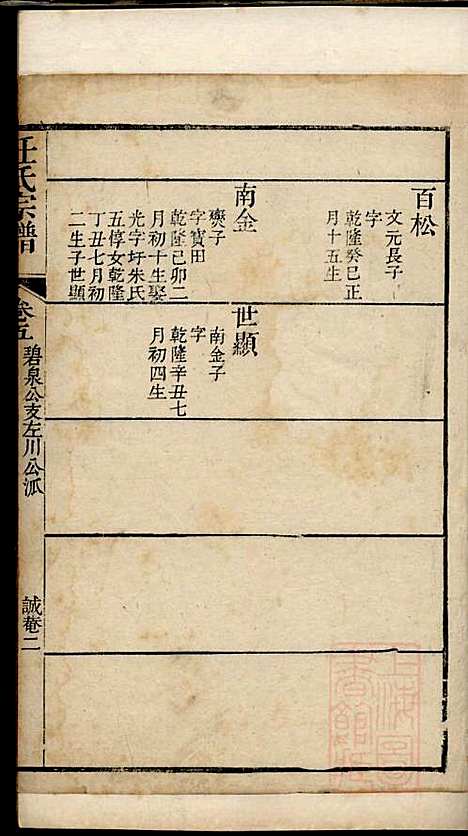 百松
文元長子
字
乾隆癸巳正
月十五生
南金
爕子
字寳田
乾隆己卯二
月初十生娶
光字圩朱氏
五停女乾隆
丁丑七月初
二生子世顯
世顯
南金子
字
乾隆辛丑七
月初四生
氏宗譜
卷五
碧泉公支左川公派
誠菴二
上海圖
書館藏